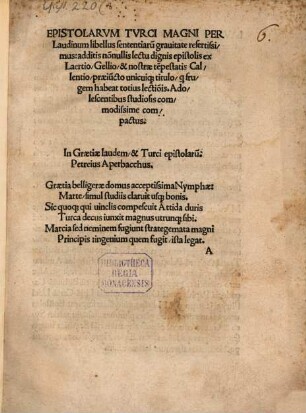 6.
EPISTOLARVM TVRCI MAGNI PER
Laudinum libellus sententiarū grauitate refertissi/
mus: additis nōnullis lectu dignis epistolis ex
Laertio/Gellio/& nostræ tēpestatis Cal/
lentio/præiūcto unicuiq; titulo/ q̄ fru
gem habeat totius lectiōis. Ado/
lescentibus studiosis com
modissime com/
pactus.
In Grætiæ laudem/& Turci epistolarū:
Petreius Aperbacchus.
Grætia belligeræ domus acceptissima Nymphæ:
Marte/simul studiis claruit usq; bonis.
Sic quoq; qui uinclis compescuit Attida duris
Turca decus iunxit magnus utrunq; sibi.
Marcia sed neminem fugiunt strategemata magni
Principis: ingenium quem fugit/ista legat.
A
BIBLIOTHECA
REGIA
MONACENSIS